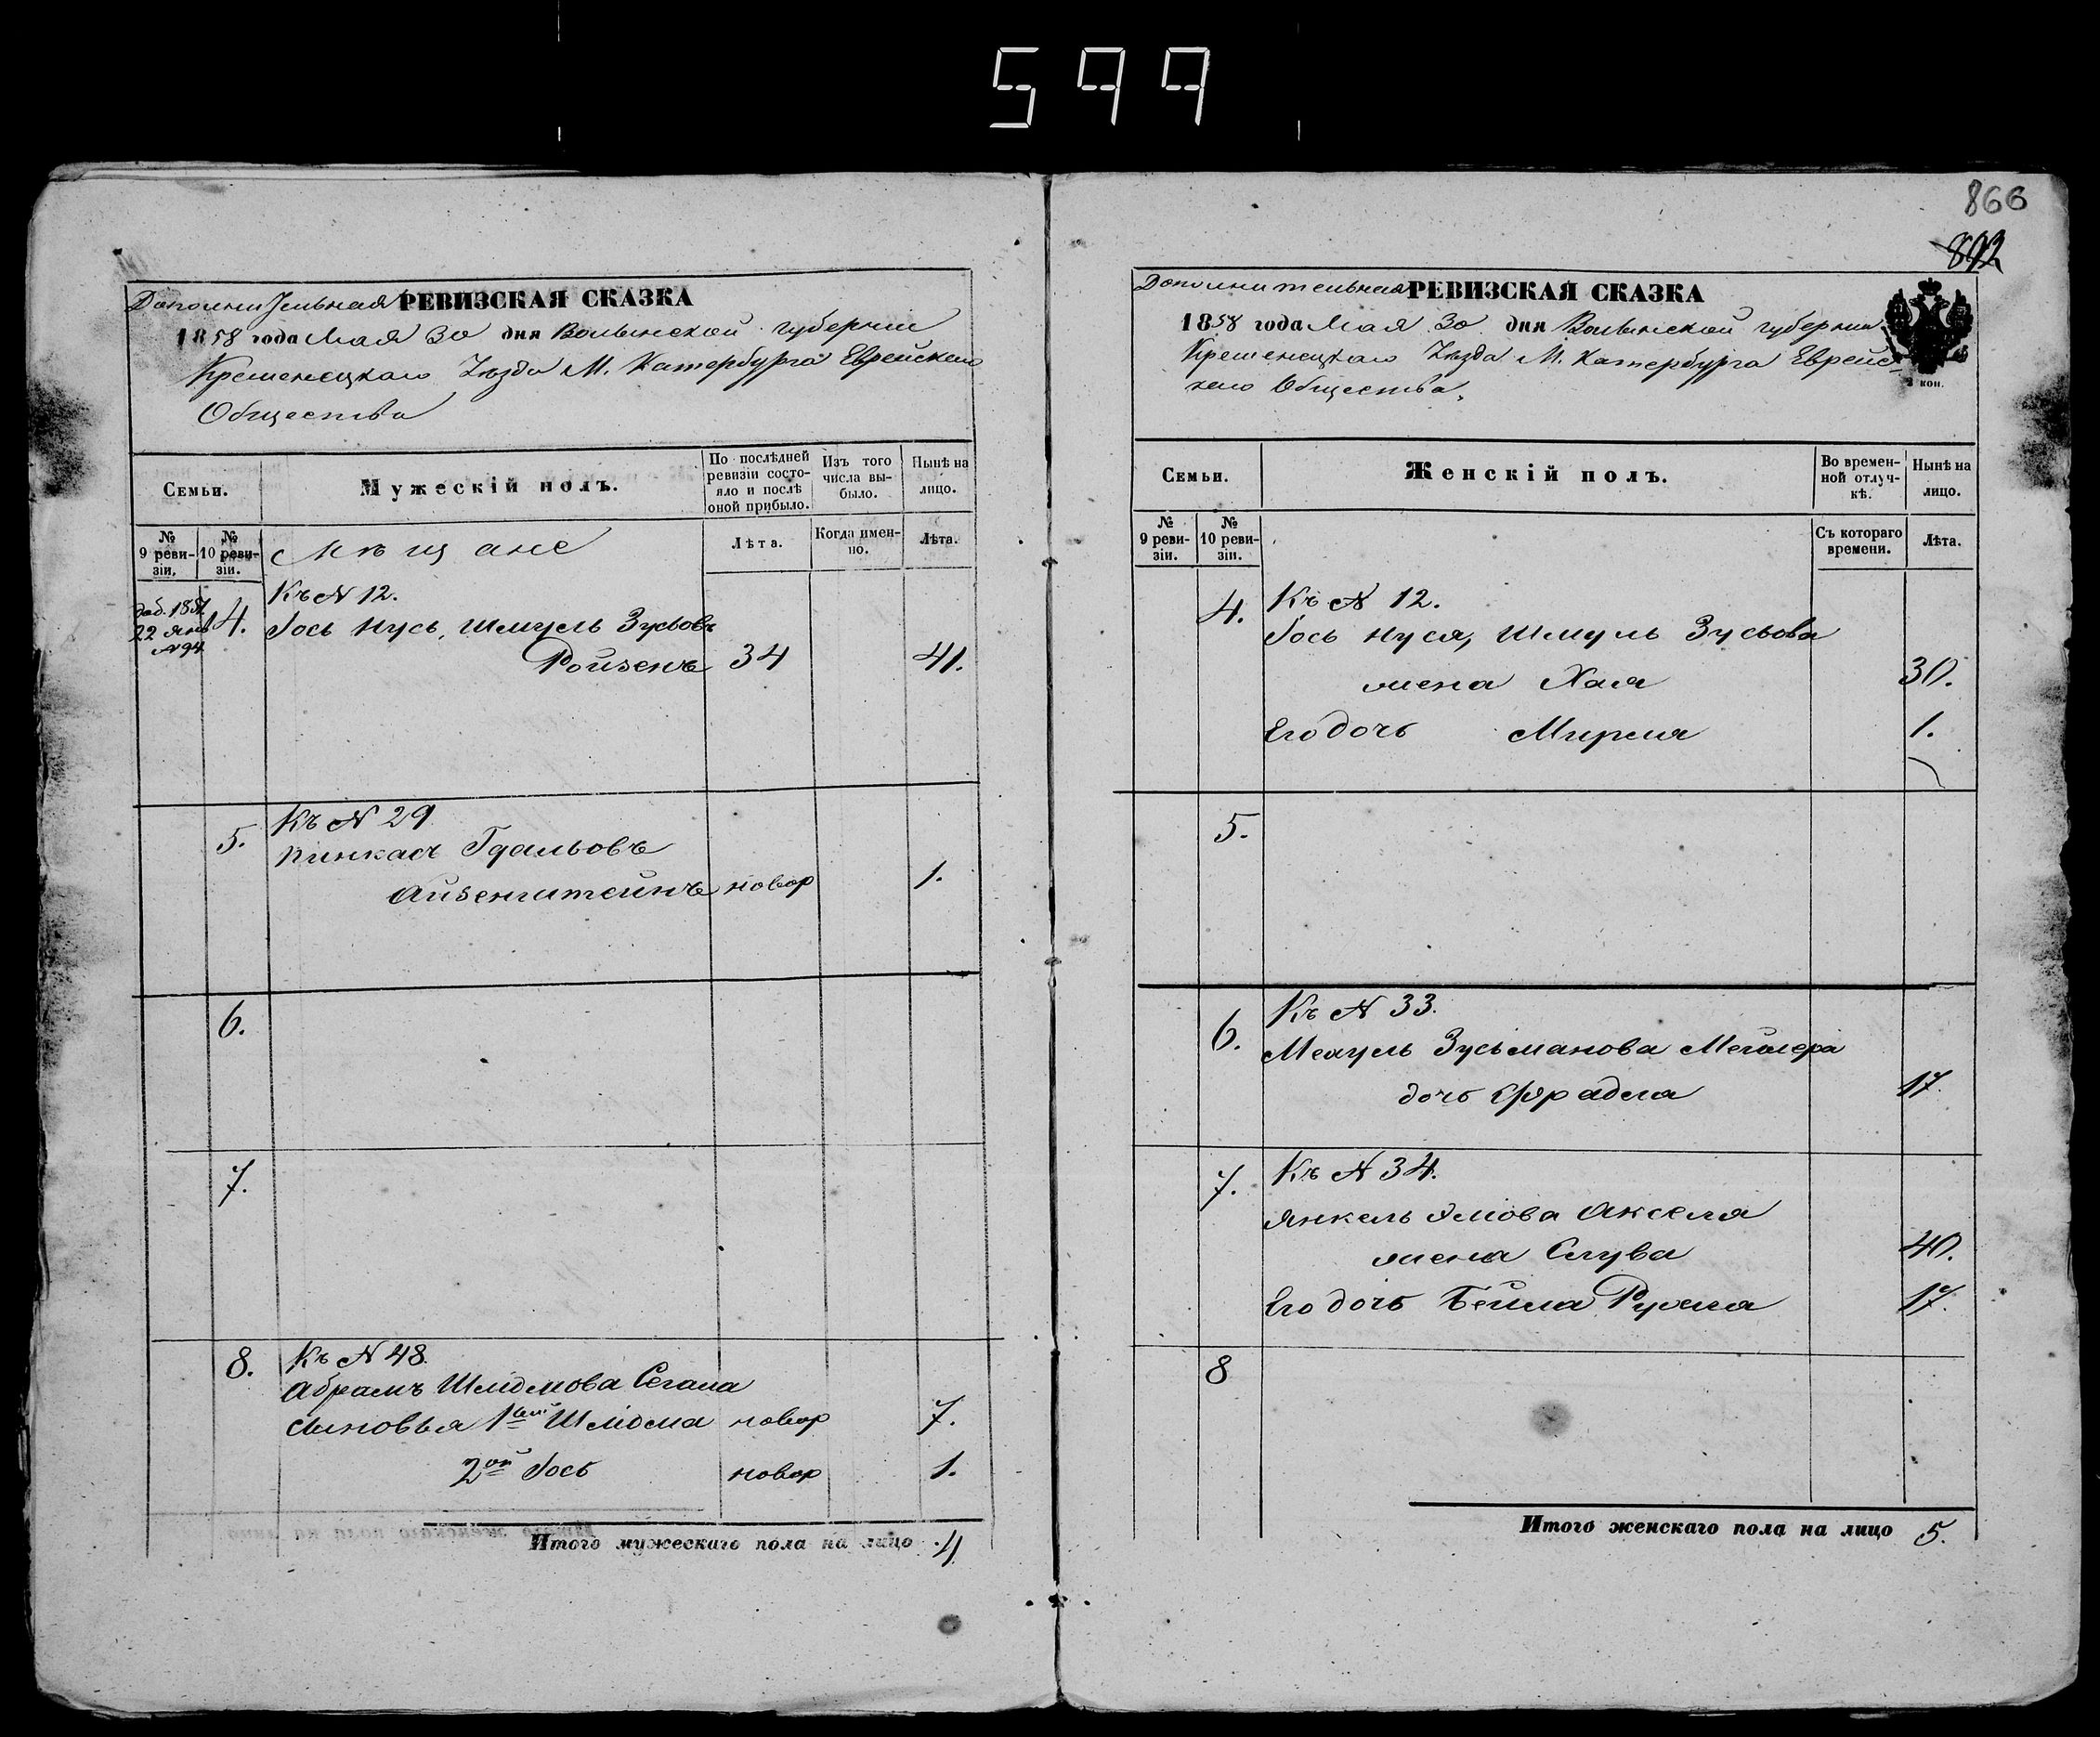 599
866
892
Дополнительная РЕВИЗСКАЯ СКАЗКА
1858 года Мая 30 дня Волынской губернии
Кременецкаго Уѣзда М. Катербурга Еврейскаго
Общества
Семьи.
Мужескій полъ.
По послѣдней ревизіи состояло и послѣ оной прибыло.
Изъ того числа выбыло.
Нынѣ на лицо.
№ 9 ревизіи.
№ 10 ревизіи.
Мѣщане
Лѣта.
Когда именно.
Лѣта.
Къ N 12.
доб. 1851.
22 Янв
N 94
4. Іось Нусь, Шмуль Зусьовъ
Ройзенъ 34 41.
Къ N 29
5. Пинкасъ Гдальовъ
Айзенштейнъ новор 1.
6.
7.
8. Къ N 48.
Абрамъ Шліомова Сегала
сыновья 1ый Шліома новор 7.
2ой Іось новор 1.
Итого мужескаго пола на лицо 4
Дополнительная РЕВИЗСКАЯ СКАЗКА
1858 года Мая 30 дня Волынской губернии
Кременецкаго Уѣзда М. Катербурга Еврейс-
каго Общества.
коп.
Семьи.
Женскій полъ.
Во временной отлучкѣ.
Нынѣ на лицо.
№ 9 ревизіи.
№ 10 ревизіи.
Съ котораго времени.
Лѣта.
4. Къ N 12.
Іось Нуся, Шмуль Зусьова
жена Хая 30.
Его дочь Мирля 1.
5.
Къ N 33.
6. Мехуль Зусьманова Мейлера
дочь Фрадля 17.
7. Къ N 34.
Янкель Аксея
жена Слува 40.
Его дочь Бейла Рухля 17.
8
Итого женскаго пола на лицо 5.